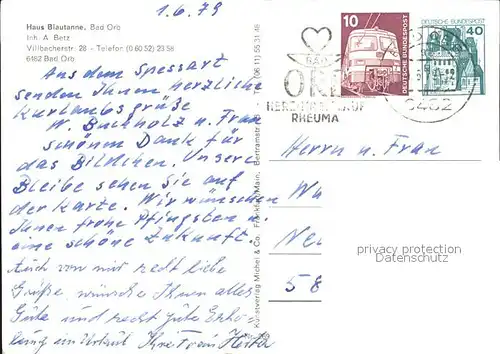 1.6.79
Haus Blautanne, Bad Orb
Inh. A. Betz
Villbacherstr. 28 - Telefon (0 60 52) 23 58
6482 Bad Orb
Aus dem Spessart
senden Ihnen herzliche
Kurlaubsgrüße
W. Buchholz u. Frau
schönen Dank für
das Bildchen. Unsere
Bleibe sehen Sie auf
der Karte. Wir wünschen
Ihnen frohe Pfingsten u.
eine schöne Zukunft.
Auch von mir recht liebe
Grüße, wünsche Ihnen alles
Gute und recht gute Erho-
lung im Urlaub Ihre Frau Herta
Kunstverlag Michel & Co. Frankfurt/Main, Bertramstr. (06 11) 55 31 48
10
DEUTSCHE BUNDESPOST
DEUTSCHE BUNDESPOST
40
BAD
ORB
HERZ KREISLAUF
RHEUMA
6482
Herrn u. Frau
Wa
Ne
58
privacy protection
Datenschutz